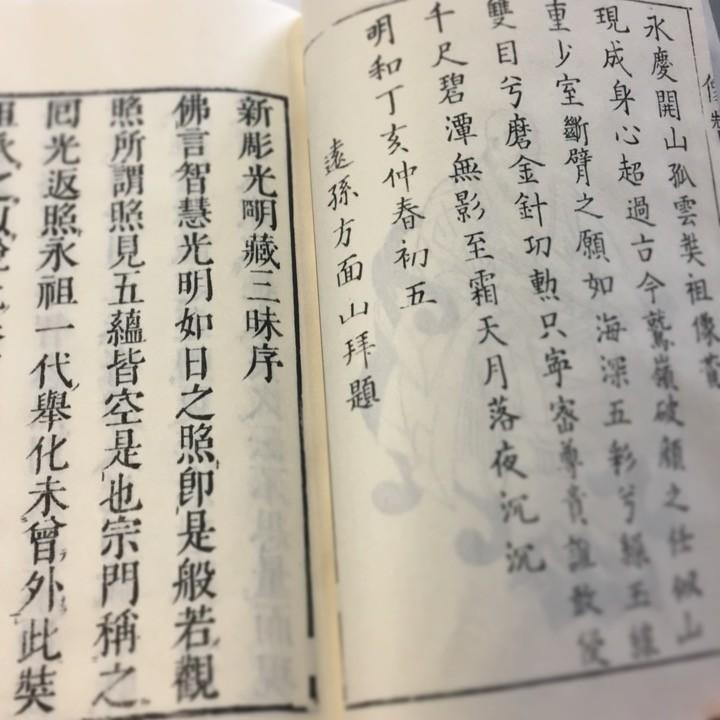 永慶開山孤雲奘祖像賛
現成身心超過古今鷲嶺破顔之任似山
重少室斷臂之願如海深五彩兮玉
雙目兮磨金針功勲只寧密尊貴誰敢侵
千尺碧潭無影至霜天月落夜沉沉
明和丁亥仲春初五
遠孫方面山拜題
新彫光明藏三昧序
佛言智慧光明如日之照即是般若觀
照所謂照見五蘊皆空是也宗門稱之
囘光返照永祖一代舉化未曾外此奘
祖承之以